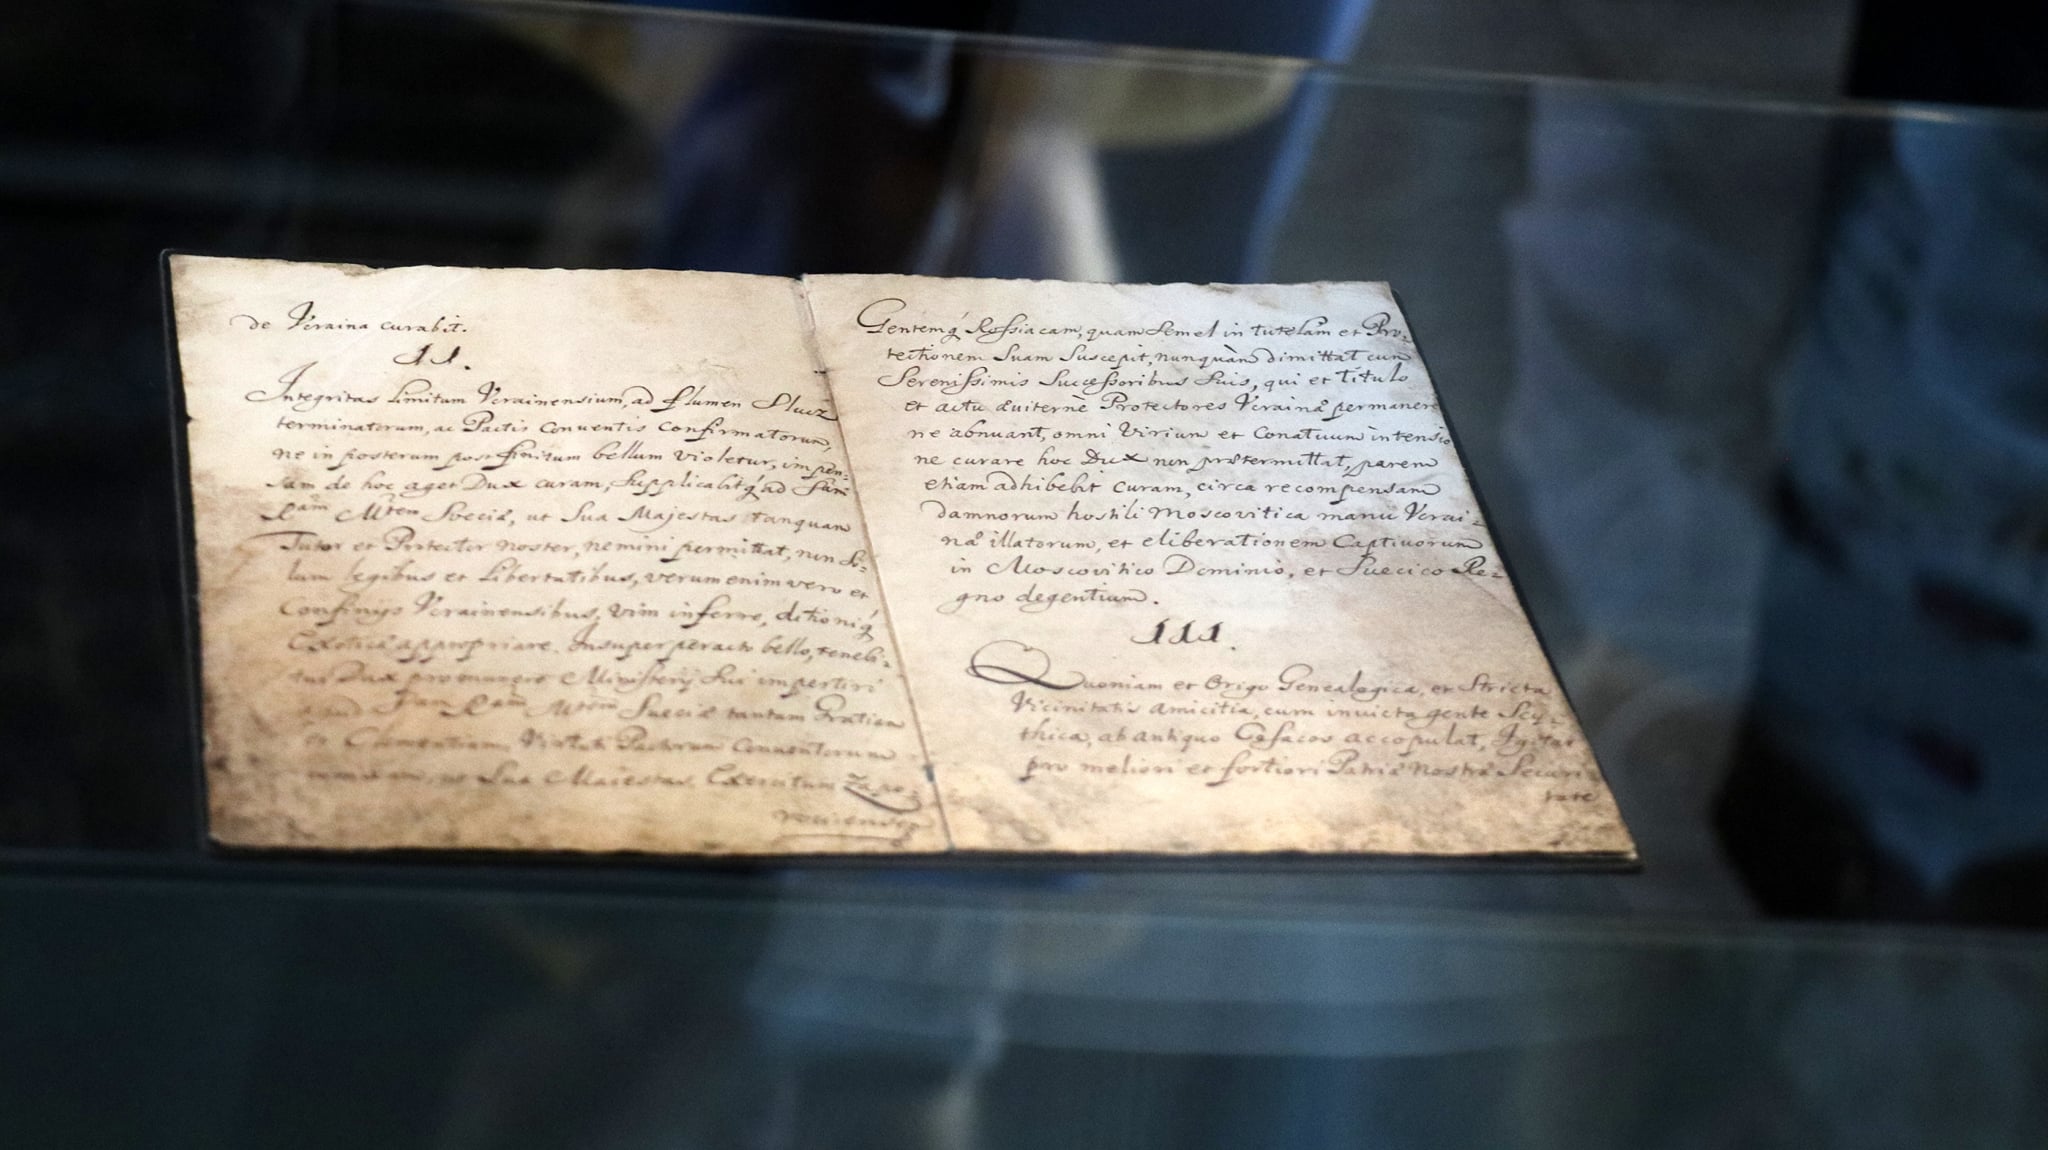 de Vcraina curabit.
II.
Integritas limitum Vcrainensium, ad flumen Slucz
terminatorum, ac Pactis conventis confirmatorum,
ne in posterum post finitum bellum violetur, impen-
sam de hoc aget Dux curam, supplicabitq́ ad
Rãm Mtẽm Sveciæ, ut Sua Majestas tanquam
Tutor et Protector noster, nemini permittat, non so-
lum legibus et libertatibus, verum enim vero et
Confinijs Vcrainensibus, vim inferre, ditioniq́
Exoticæ appropriare. Insuper peracto bello, tenebi-
tur Dux pro munere Ministerij sui impertiri
apud Rãm Mtẽm Sueciæ tantam Gratiam
et Clementiam, virtute Pactorum Conventorum
ut Sua Maiestas, Exercitum Zapo-
roviensem
Gentemq́ Rossiacam, quam semel in tutelam et Pro-
tectionem suam suscepit, nunquàm dimittat cum
Serenissimis Successoribus suis, qui et titulo
et actu æuiternè Protectores Vcrainæ permanere
ne abnuant, omni virium et conatuum intensio
ne curare hoc Dux non prætermittat, parem
etiam adhibebit curam, circa recompensam
damnorum hostili Moscovitica manu Vcrai-
næ illatorum, et eliberationem Captivorum
in Moscovitico Dominio, et Suecico Re-
gno degentium.
III.
Quoniam et Origo Genealogica, et Stricta
Vicinitatis amicitia, cum invicta gente Scy-
thica, ab antiquo Cosacos accopulat, Igitur
pro meliori et fortiori Patriæ nostræ Securi
tate